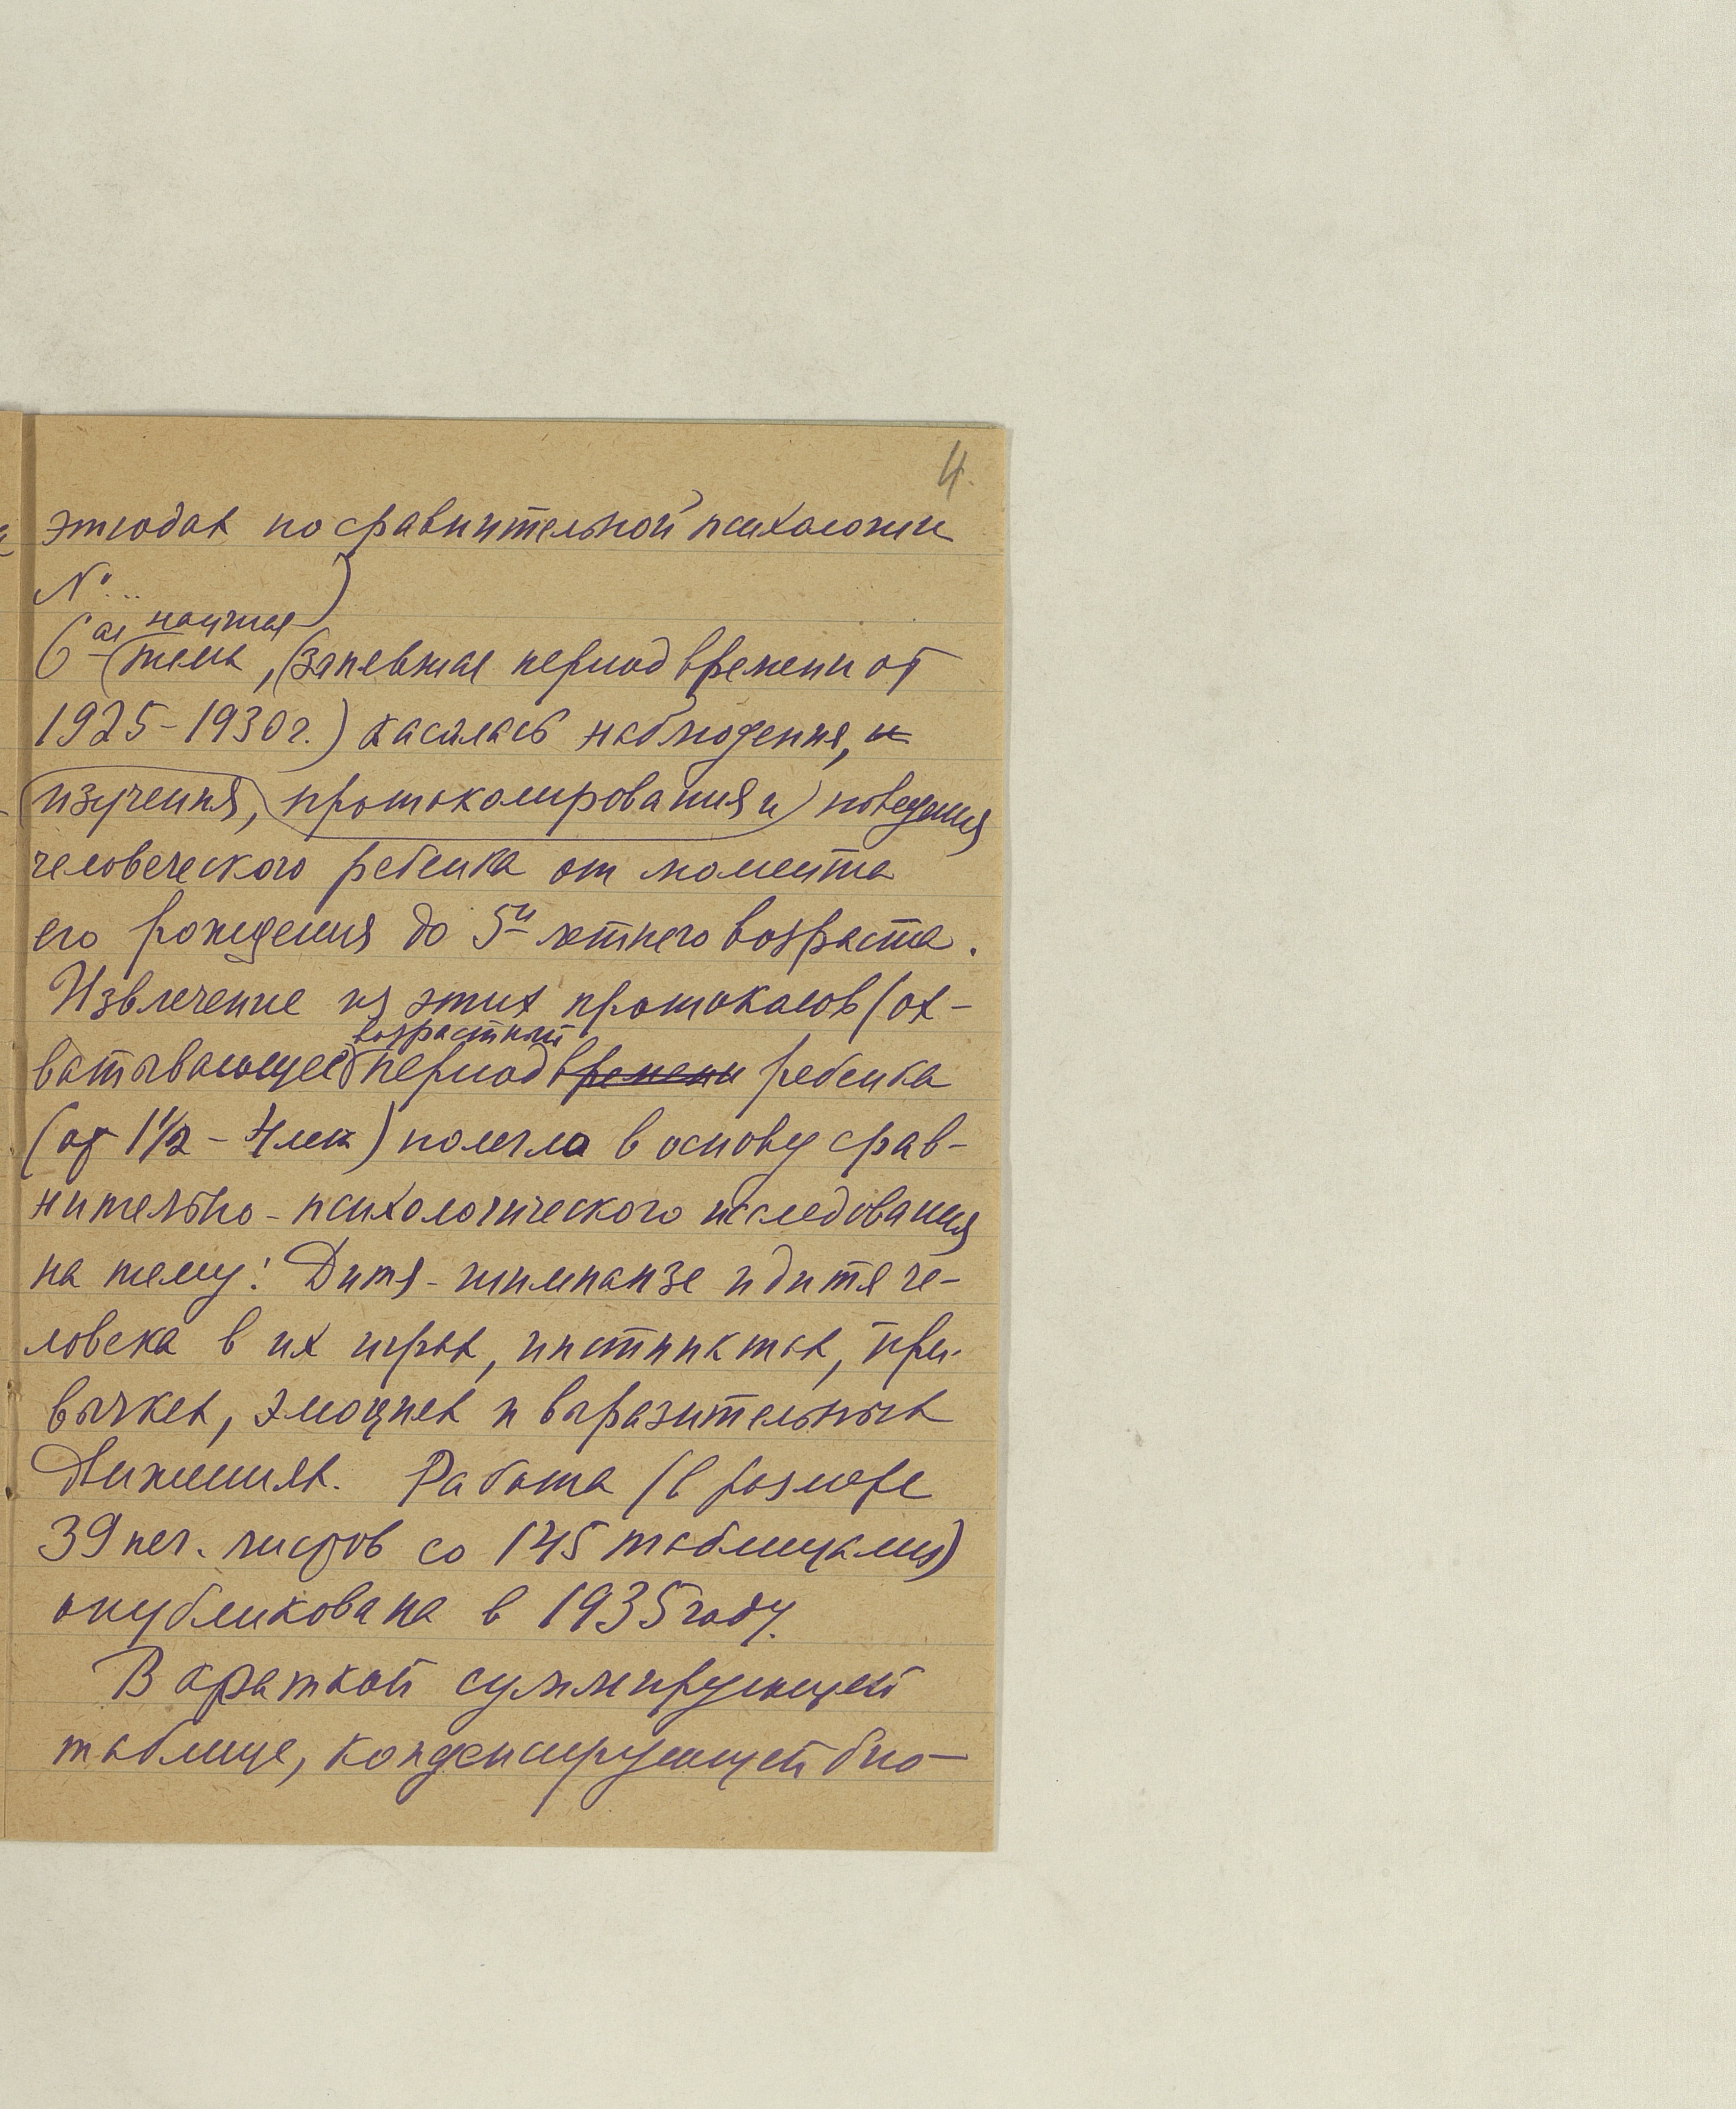 4.
этюдах по сравнительной психологии
№...
научная
6ая тема, (занявшая период времени от
1925-1930 г.) касалась наблюдения, и
изучения, протоколирования и поведения
человеческого ребенка от момента
его рождения до 5и летнего возраста.
Извлечение из этих протоколов (ох-
возрастный
ватывающее период времени ребенка
(от 1½ - 4 лет) полегло в основу срав-
нительно-психологического исследования
на тему: Дитя-шимпанзе и дитя че-
ловека в их играх, инстинктах, при-
вычках, эмоциях и выразительных
движениях. Работа (в размере
39 печ. листов со 145 таблицами)
опубликована в 1935 году.
В краткой суммирующей
таблице, конденсирующей био-